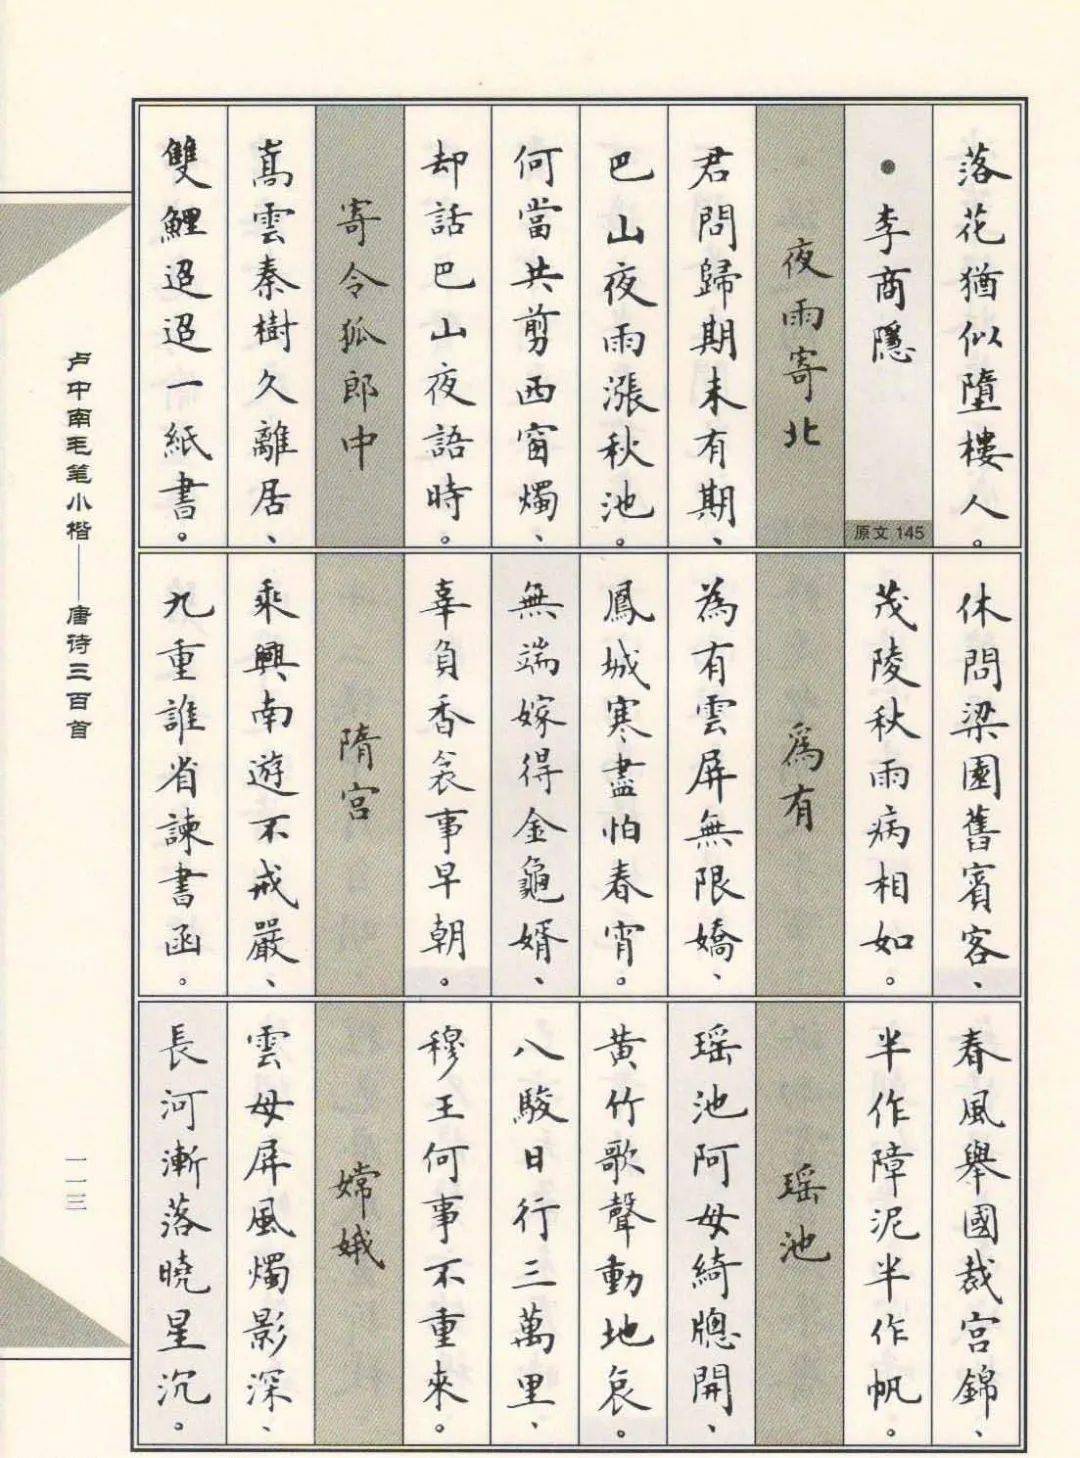 落花猶似墮樓人。
•李商隱
原文 145
夜雨寄北
君問歸期未有期、
巴山夜雨漲秋池。
何當共剪西窗燭、
却話巴山夜語時。
寄令狐郎中
嵩雲秦樹久離居、
雙鯉迢迢一紙書。
休問梁園舊賓客、
茂陵秋雨病相如。
為有
為有雲屏無限嬌、
鳳城寒盡怕春宵。
無端嫁得金龜婿、
辜負香衾事早朝。
隋宮
乘興南遊不戒嚴、
九重誰省諫書函。
春風舉國裁宮錦、
半作障泥半作帆。
瑶池
瑶池阿母綺窗開、
黃竹歌聲動地哀。
八駿日行三萬里、
穆王何事不重來。
嫦娥
雲母屏風燭影深、
長河漸落曉星沉。
卢中南毛笔小楷——唐诗三百首
一一三